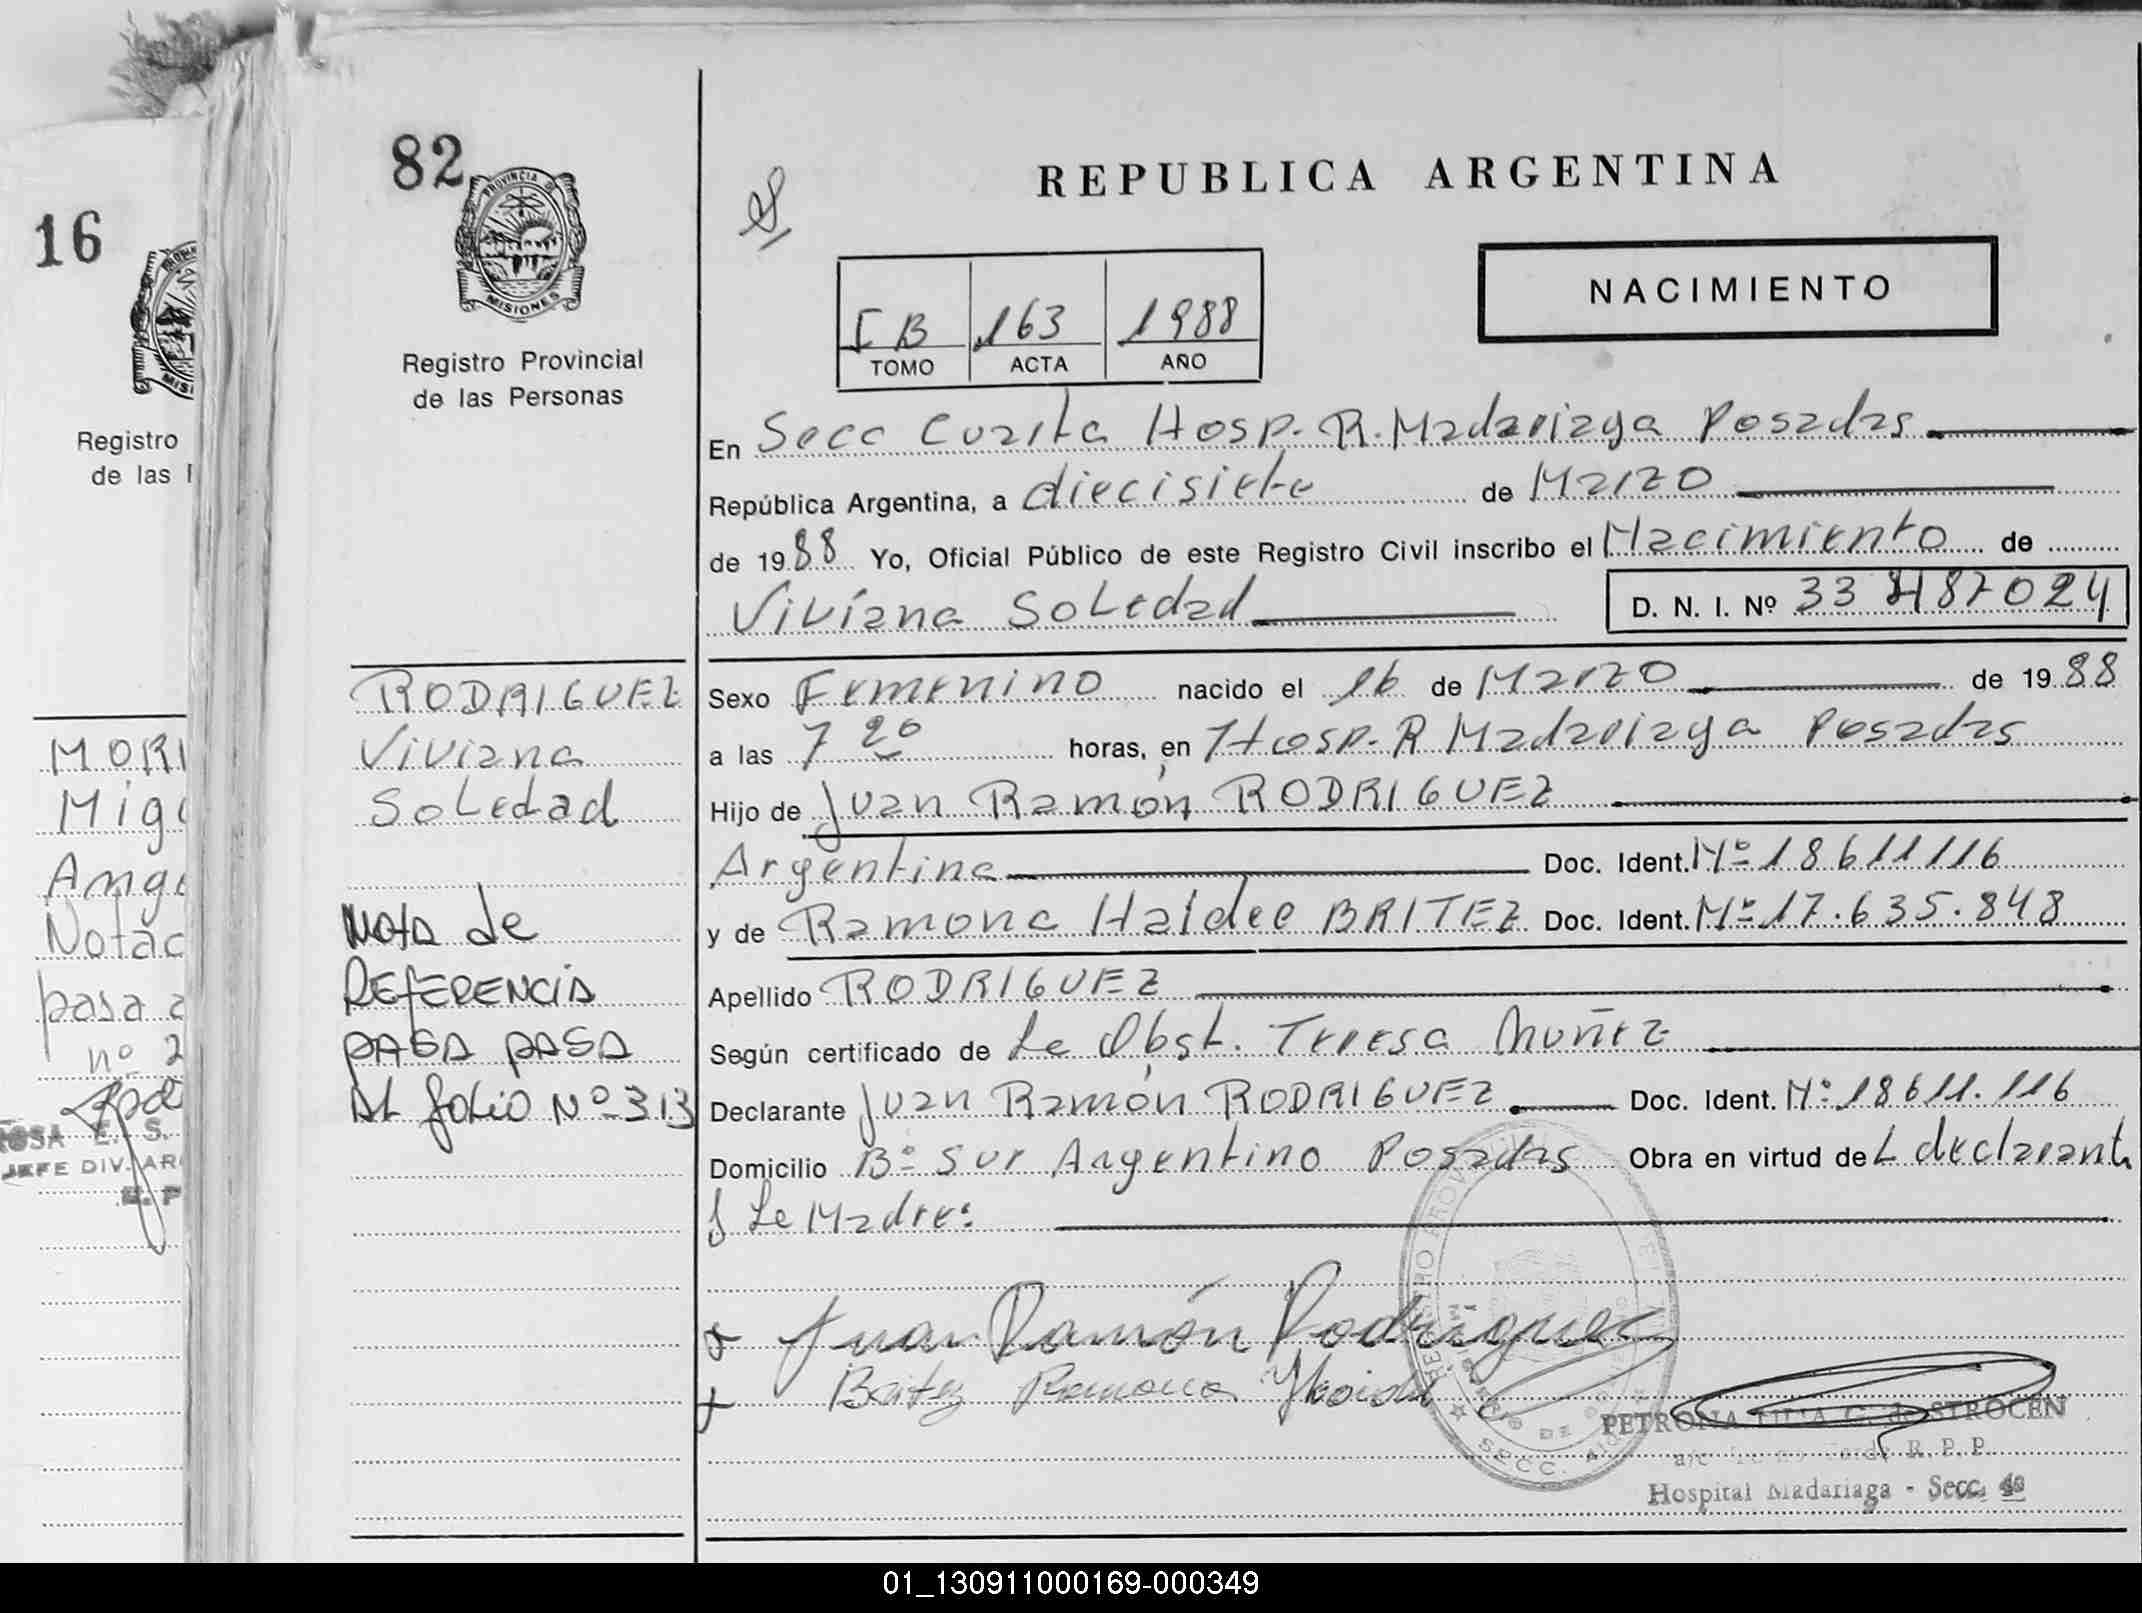 16
Registro
de las
MORI
Migu
Ange
Notac
pasa a
nº 2
ROSA E. S.
JEFE DIV. AR
82
PROVINCIA DE
MISIONES
Registro Provincial
de las Personas
REPUBLICA ARGENTINA
NACIMIENTO
I B 163 1988
TOMO ACTA AÑO
En Secc Cuarta Hosp. R. Madariaga Posadas
República Argentina, a diecisiete de Marzo
de 1988 Yo, Oficial Público de este Registro Civil inscribo el Nacimiento de
Viviana Soledad D. N. I. Nº
RODRIGUEZ
Viviana
Soledad
Nota de
REFERENCIA
PASA PASA
AL folio Nº 313
Sexo Femenino nacido el 16 de Marzo de 1988
a las 7 20 horas, en Hosp. R Madariaga Posadas
Hijo de Juan Ramón RODRIGUEZ
Argentina Doc. Ident. Nº 18611116
y de Ramona Haidee BRITEZ Doc. Ident. Nº 17.635.848
Apellido RODRIGUEZ
Según certificado de La Obst. Teresa Nuñez
Declarante Juan Ramón RODRIGUEZ Doc. Ident. Nº 18611.116
Domicilio Bº Sur Argentino Posadas Obra en virtud de L declarante
y La Madre.
Juan Ramón Rodriguez
Britez Ramona Haidee
PETRONA G. de STROCEN
R. P. P.
Hospital Madariaga - Secc. 4a
01_130911000169-000349